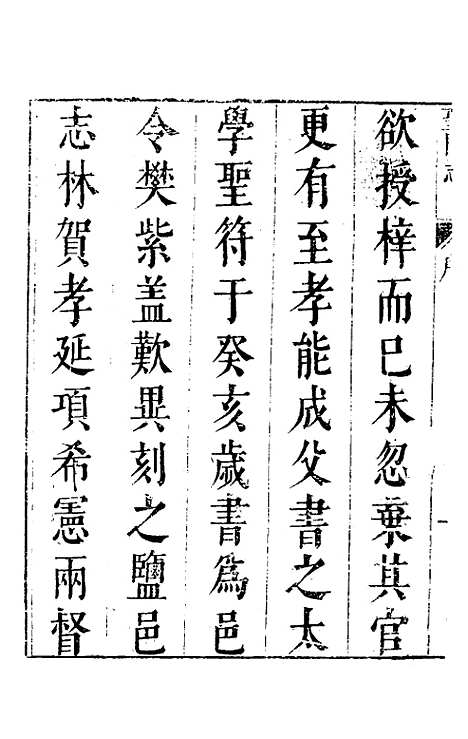 欲授梓而已未忽棄其官
更有至孝能成父書之太
學聖符于癸亥歲書爲邑
令樊紫盖歎異刻之鹽邑
志林賀孝延項希憲兩督